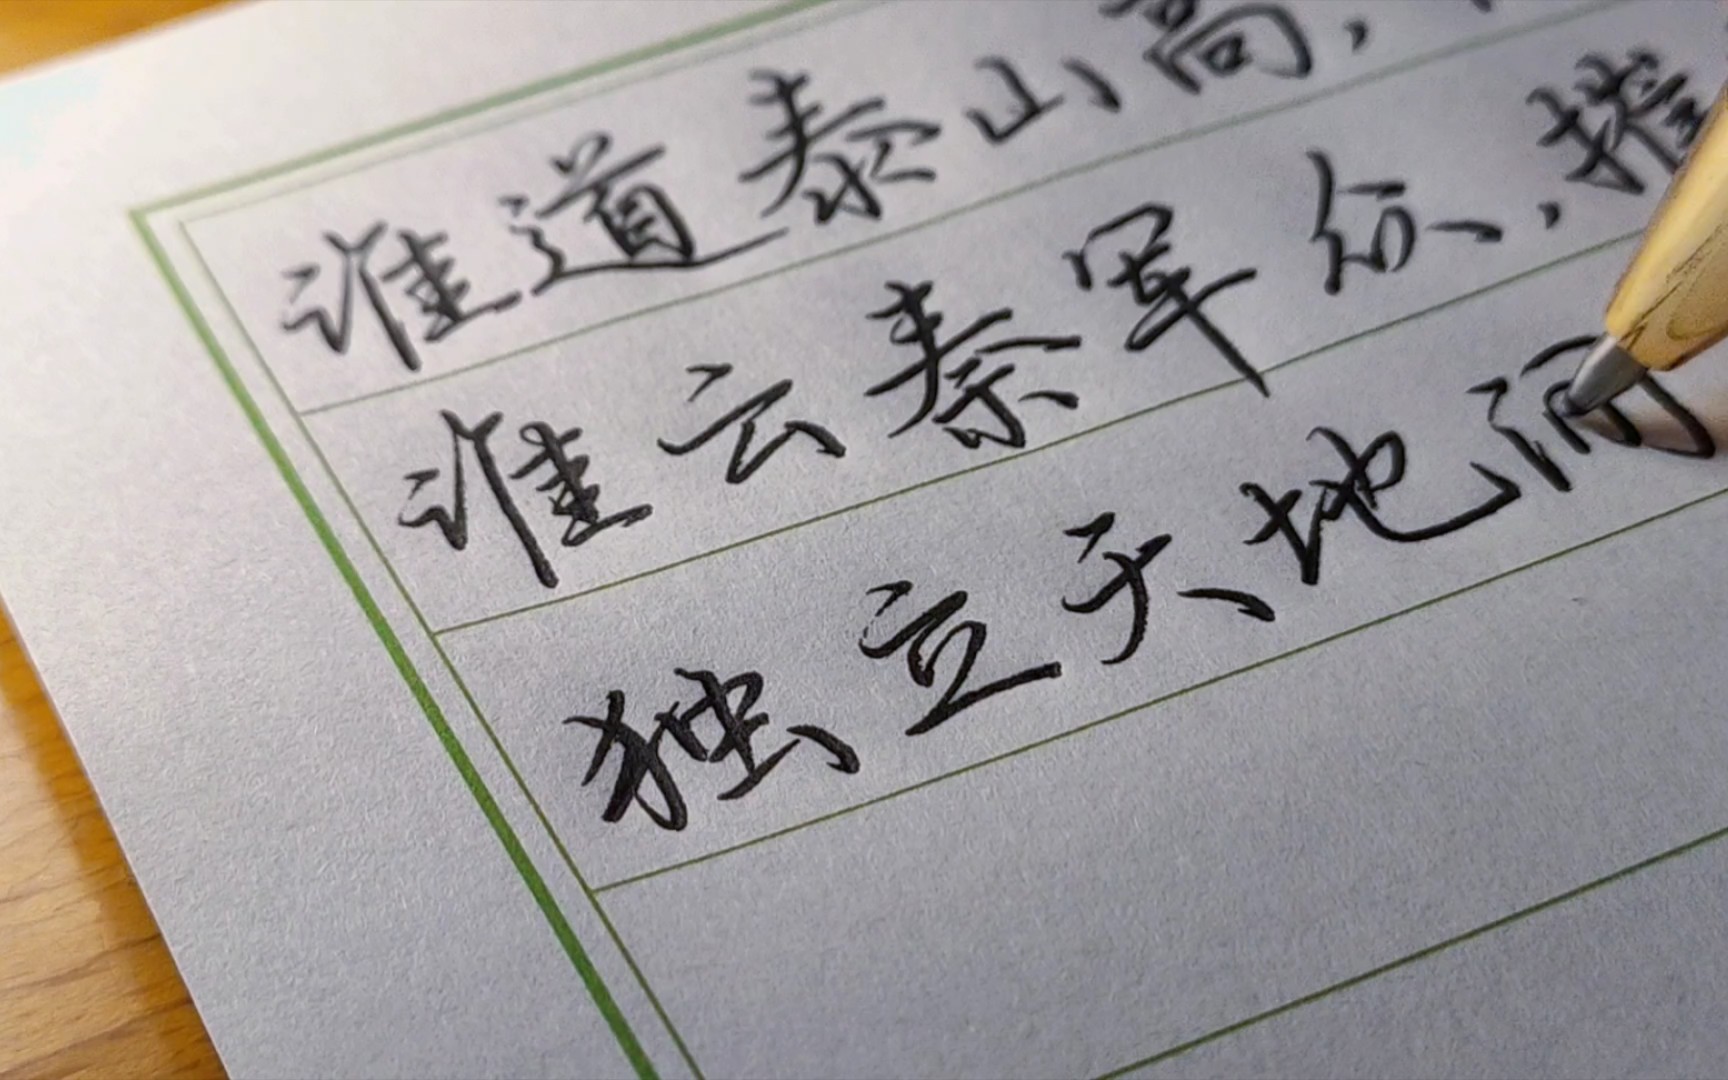 谁道泰山高,
谁云秦军众,摧
独立天地间